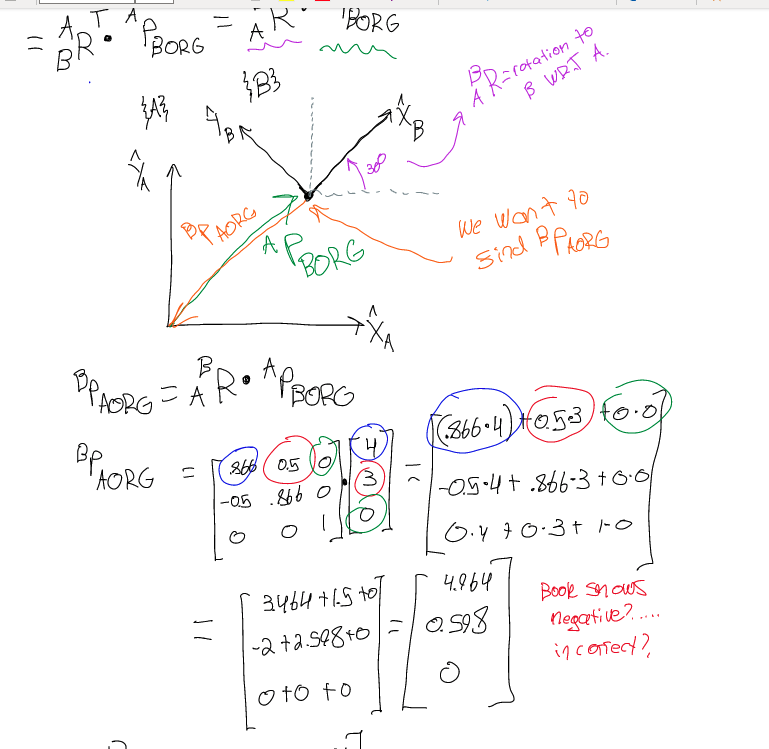 = ᴬ_B R^T · ᴬP_BORG = ᴮ_A R · ᴬP_BORG
{B}
{A}
Ŷ_B
X̂_B
30°
ᴮ_A R = rotation to
B WRT A.
Ŷ_A
ᴮP_AORG
ᴬP_BORG
we want to
find ᴮP_AORG
X̂_A
ᴮP_AORG = ᴮ_A R · ᴬP_BORG
ᴮP_AORG = [.866 0.5 0; -0.5 .866 0; 0 0 1] · [4; 3; 0] = [(.866·4) + 0.5·3 + 0·0; -0.5·4 + .866·3 + 0·0; 0·4 + 0·3 + 1·0]
= [3.464 + 1.5 + 0; -2 + 2.598 + 0; 0 + 0 + 0] = [4.964; 0.598; 0]
Book shows
negative?.....
incorrect?